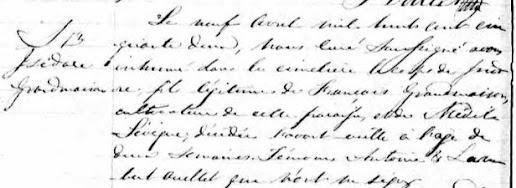 S 13
Isidore
Grandmaison
Le neuf Avril mil huit cent cin
quante deux, Nous Curé Soussigné avons
inhumé dans le cimetière le corps de Isido
re, fils légitime de François Grandmaison,
cultivateur de cette paroisse, et de Médile
Lévêque; décédée avant veille à l'age de
deux Semaines. Témoins Antoine & Lam
bert Ouellet qui n'ont su signer